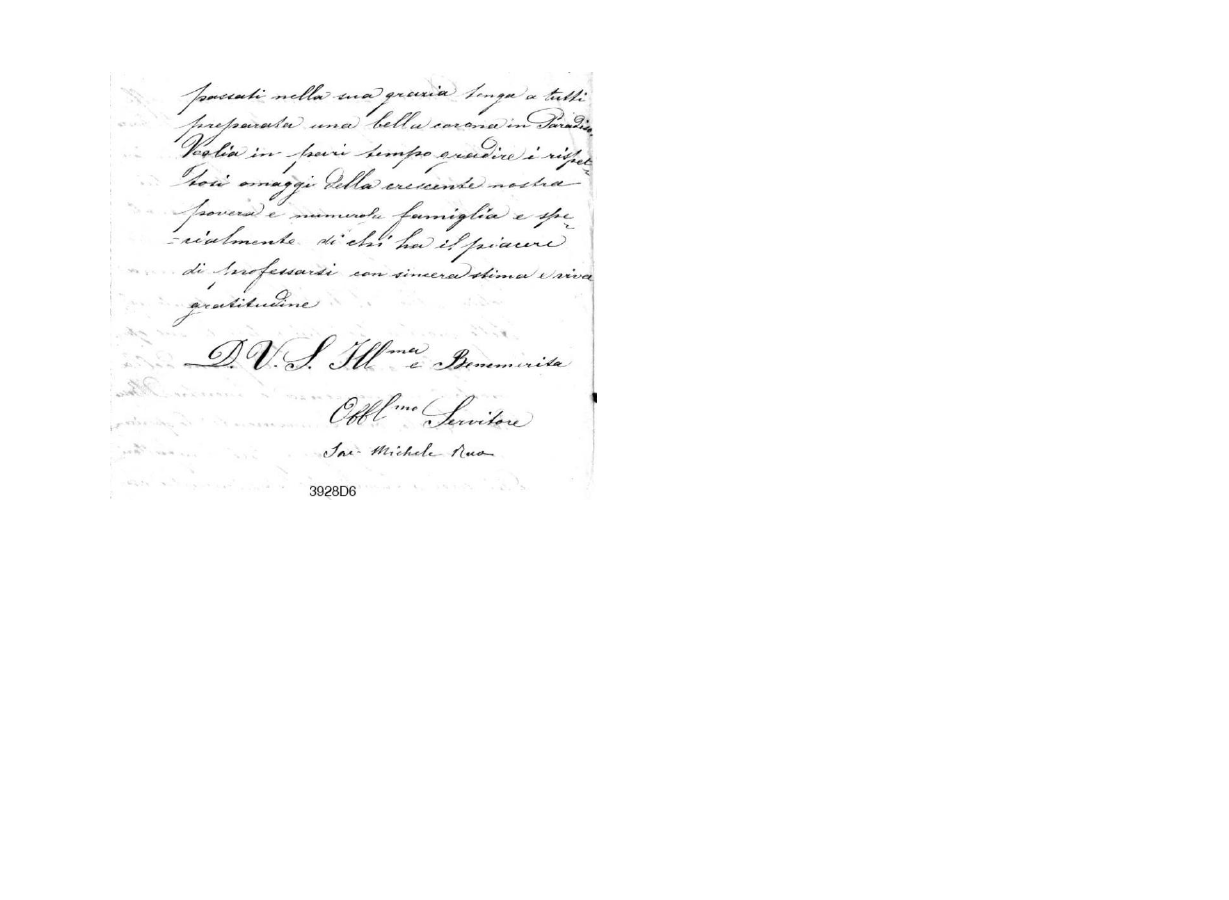 passati nella sua grazia tenga a tutti
preparata una bella corona in Paradiso.
Voglia in pari tempo gradire i rispet-
tosi omaggi della crescente nostra
povera e numerosa famiglia e spe-
-cialmente di chi ha il piacere
di professarsi con sincera stima e viva
gratitudine
D. V. S. Ill.ma e Benemerita
Obbl.mo Servitore
Sac. Michele Rua
3928D6